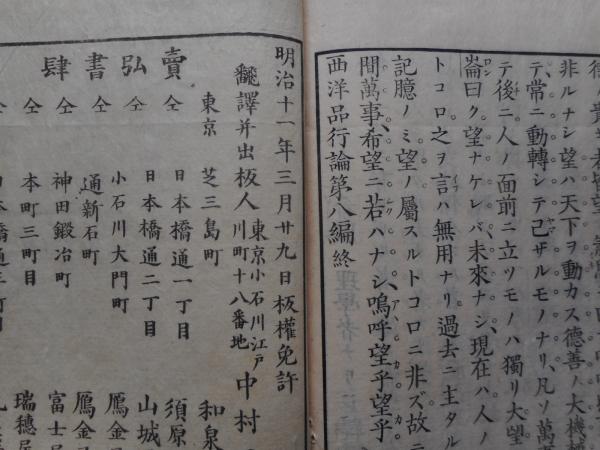 非ルナシ望ハ天下ヲ動カス德善ノ大機
テ、常ニ動轉シテ已ザルモノナリ、凡ソ萬
テ後ニ人ノ面前ニ立ツモノハ獨リ大望
崙曰ク望ナケレバ、未來ナシ、現在ハ人ノ
トコロ之ヲ言ハ無用ナリ過去ニ主タル
記臆ノミ望ノ屬スルトコロニ非ズ故ニ
間萬事、希望ニ若ハナシ、嗚呼望乎望乎
西洋品行論第八編終
明治十一年三月廿九日板權免許
飜譯并出板人 東京小石川江戸川町十八番地 中村
賣弘書肆
東京 芝三島町 和泉
仝 日本橋通一丁目 須原
仝 日本橋通二丁目 山城
仝 小石川大門町 鴈金
仝 通新石町 鴈金
仝 神田鍛冶町 富士
仝 本町三町目 瑞穗